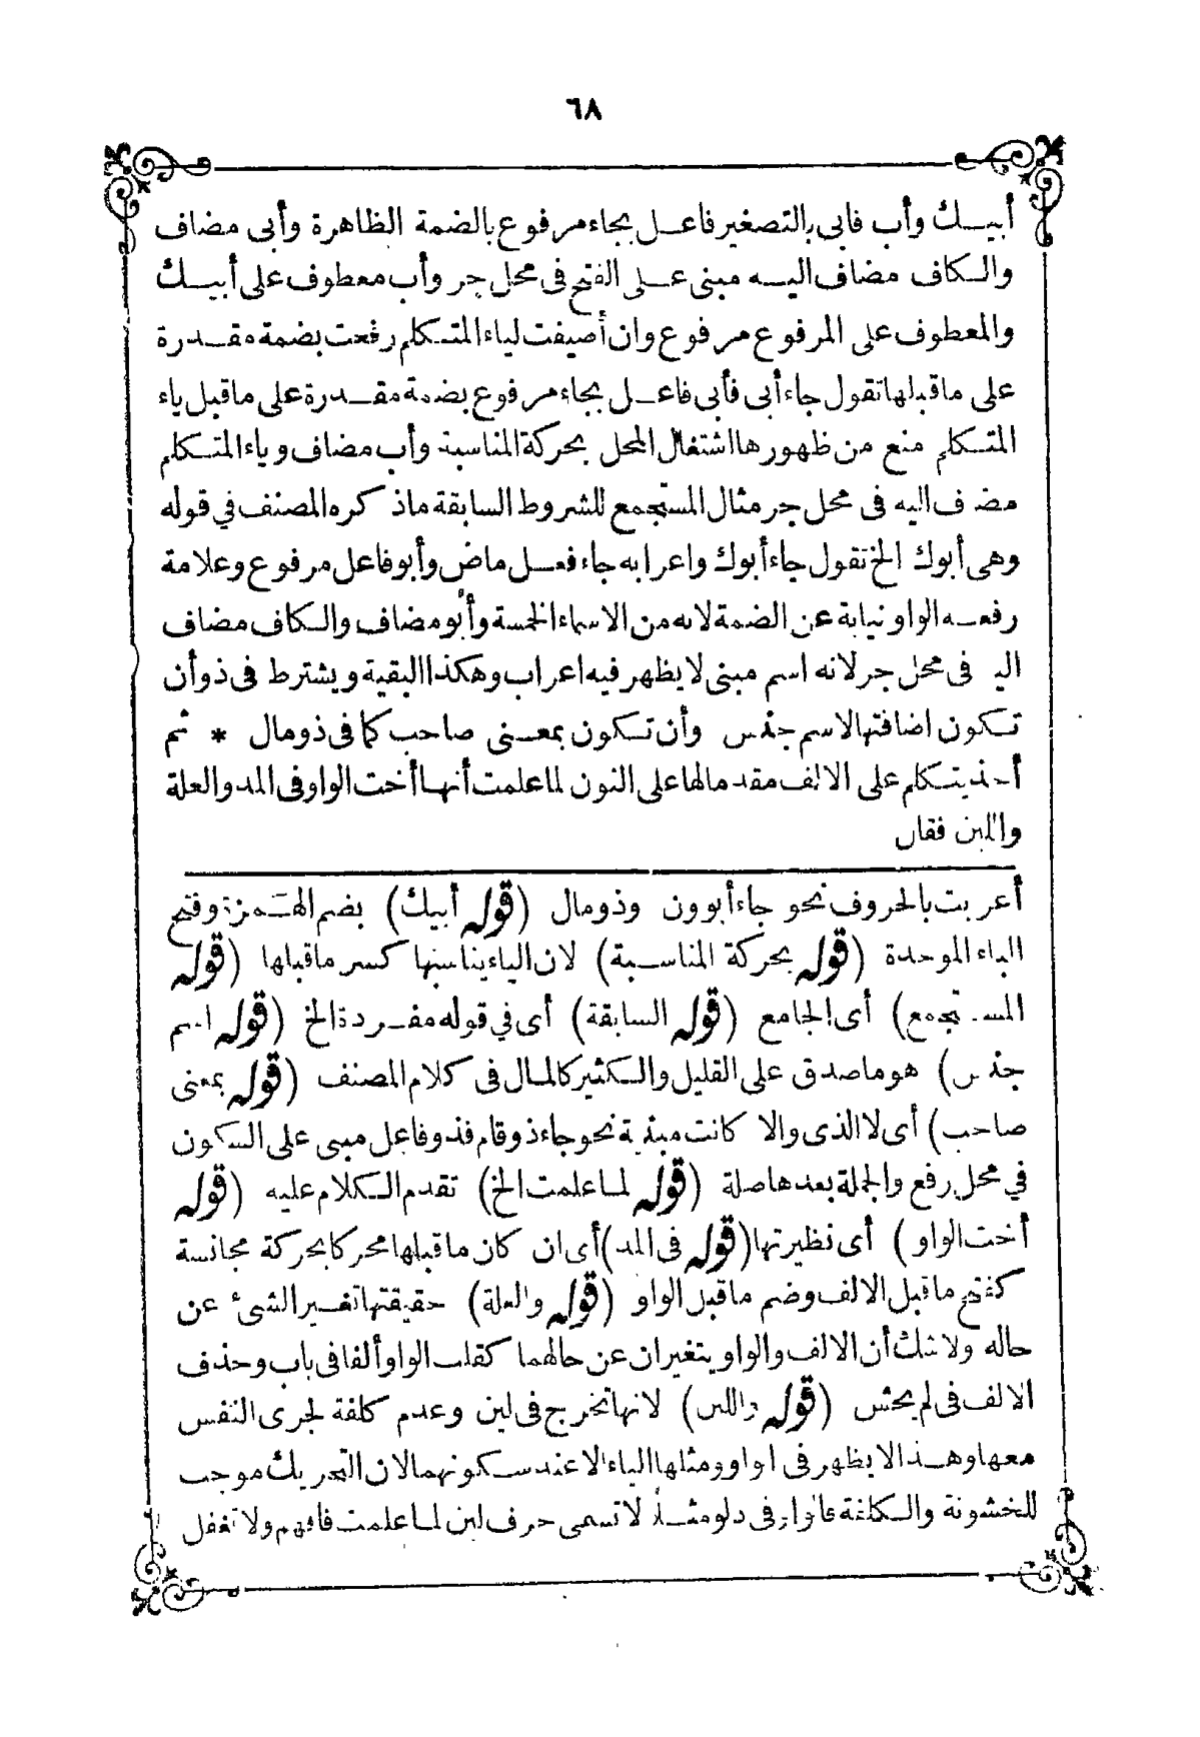 ٦٨
أبيك وأب فابى بالتصغير فاعل بجاء مرفوع بالضمة الظاهرة وأبى مضاف
والكاف مضاف اليه مبنى على الفتح فى محل جر وأب معطوف على أبيك
والمعطوف على المرفوع مرفوع وان أضيفت لياء المتكلم رفعت بضمة مقدرة
على ما قبلها تقول جاء أبى فأبى فاعل بجاء مرفوع بضمة مقدرة على ما قبل ياء
المتكلم منع من ظهورها اشتغال المحل بحركة المناسبة وأب مضاف وياء المتكلم
مضاف اليه فى محل جر مثال المستجمع للشروط السابقة ماذكره المصنف في قوله
وهى أبوك الخ تقول جاء أبوك واعرابه جاء فعل ماض وأبو فاعل مرفوع وعلامة
رفعه الواو نيابة عن الضمة لانه من الاسماء الخمسة وأبو مضاف والكاف مضاف
اليه فى محل جر لانه اسم مبنى لا يظهر فيه اعراب وهكذا البقية ويشترط فى ذو أن
تكون اضافتها لاسم جنس وأن تكون بمعنى صاحب كما فى ذو مال * ثم
أخذ يتكلم على الالف مقدما لها على النون لما علمت أنها أخت الواو فى المد والعلة
واللين فقال
أعربت بالحروف نحو جاء أبوون وذو مال (قوله أبيك) بضم الهمزة وفتح
الباء الموحدة (قوله بحركة المناسبة) لان الياء يناسبها كسر ما قبلها (قوله
المستجمع) أى الجامع (قوله السابقة) أى في قوله مفردة الخ (قوله اسم
جنس) هو ما صدق على القليل والكثير كالمال فى كلام المصنف (قوله بمعنى
صاحب) أى لا الذى والا كانت مبنية نحو جاء ذو قام فذو فاعل مبنى على السكون
في محل رفع والجملة بعدها صلة (قوله لما علمت الخ) تقدم الكلام عليه (قوله
أخت الواو) أى نظيرتها (قوله فى المد) أى ان كان ما قبلها محركا بحركة مجانسة
كفتح ما قبل الالف وضم ما قبل الواو (قوله والعلة) حقيقتها تغيير الشئ عن
حاله ولا شك أن الالف والواو يتغيران عن حالهما كقلب الواو ألفا فى باب وحذف
الالف فى لم يخش (قوله واللين) لانها تخرج فى لين وعدم كلفة لجرى النفس
معها وهذا لا يظهر فى الواو ومثلها الياء الا عند سكونهما لان التحريك موجب
للخشونة والكلفة فالواو فى دلو مثلا لا تسمى حرف لين لما علمت فافهم ولا تغفل